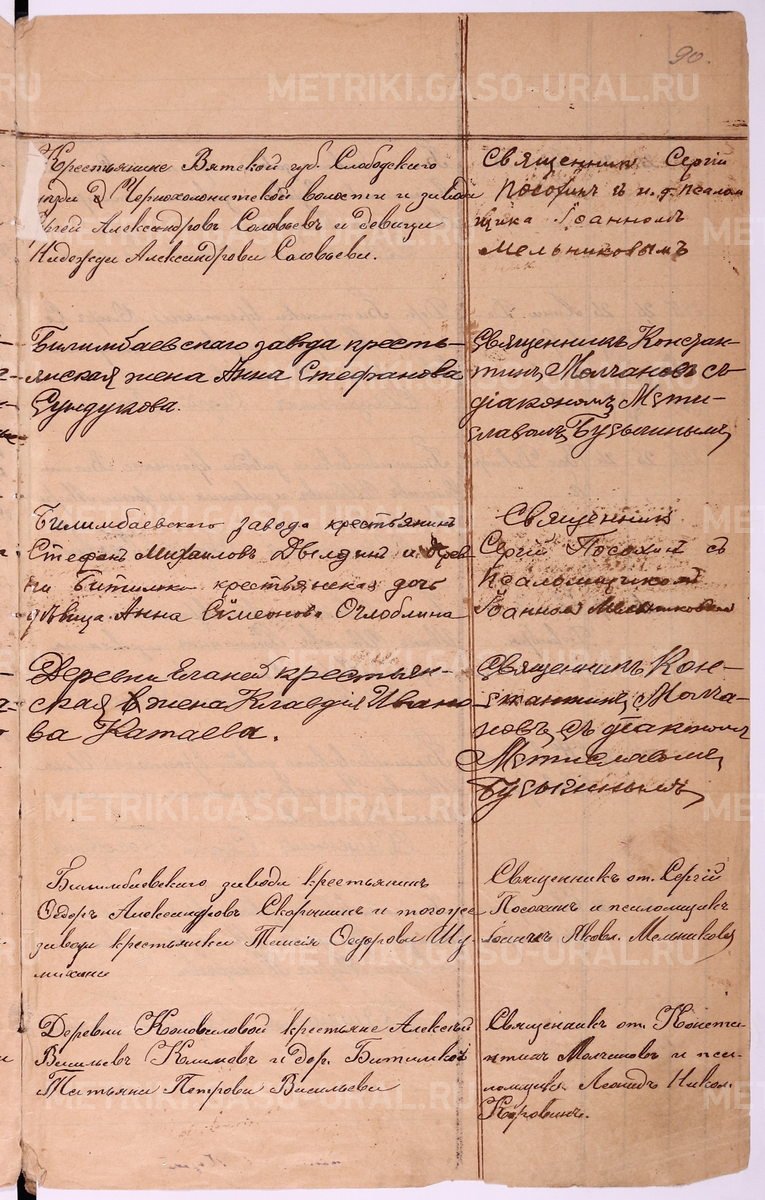 90.
METRIKI.GASO-URAL.RU
Крестьянине Вятской губ. Слободского
Чернохолоницкой волости и завода
Александровъ Соловьевъ и девица
Надежда Александрова Соловьева.
Священник Сергій
Посохинъ с и. д. псалом
щика Іоанномъ
Мельниковымъ
Билимбаевскаго завода кресть-
янская жена Анна Стефанова
Сундукова.
Священникъ Констан-
тинъ Молчановъ съ
діакономъ Мсти-
славомъ Бусыгинымъ
Билимбаевского завода крестьянин
Стефан Михаилов и дерев
ни Битимки крестьянская дочь
дѣвица Анна Симеонова Оглоблина
Священник
Сергій Посохин съ
Псаломщиком
Іоанном Мельниковым
METRIKI.GASO-URAL.RU
Деревни крестьян-
ская жена Клавдія Ивано
ва Катаева.
Священникъ Кон-
стантинъ Молча-
новъ съ діакономъ
Мстиславомъ
Бусыгинымъ
METRIKI.GASO-URAL.RU
Билимбаевского завода крестьянинъ
Ѳедоръ Александровъ Скорынинъ и тогоже
завода крестьянка Таисія Ѳедорова Шу
махина
Священникъ от. Сергій
Посохинъ и псаломщикъ
Іоаннъ Яковл. Мельниковъ
Деревни Коноваловой крестьяне Алексѣй
Васильевъ Климовъ и дер. Битимкой
Татьяна Петрова Васильева
Священникъ от. Конста
нтинъ Молчановъ и пса-
ломщикъ Леонидъ Никол.
Коровинъ.
METRIKI.GASO-URAL.RU